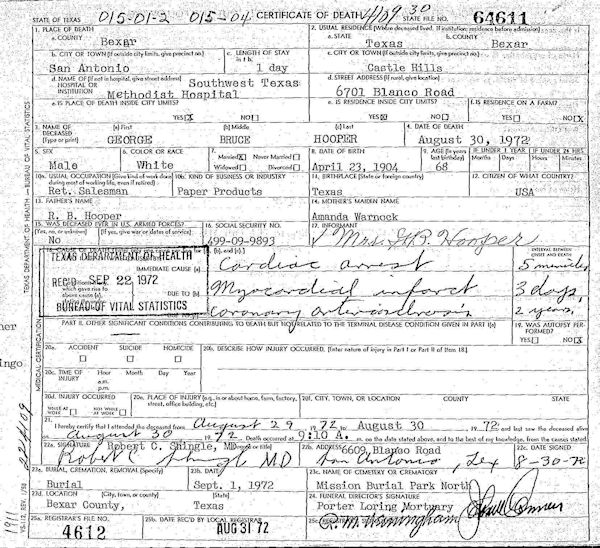 015-01-2 015-04 CERTIFICATE OF DEATH 4109 30
STATE OF TEXAS STATE FILE NO. 64611
1. PLACE OF DEATH
a. COUNTY
Bexar
2. USUAL RESIDENCE (Where deceased lived. If institution: residence before admission)
a. STATE
Texas
b. COUNTY
Bexar
b. CITY OR TOWN (If outside city limits, give precinct no.)
San Antonio
c. LENGTH OF STAY in 1 b.
1 day
c. CITY OR TOWN (If outside city limits, give precinct no.)
Castle Hills
d. NAME OF (If not in hospital, give street address)
HOSPITAL OR INSTITUTION
Southwest Texas
Methodist Hospital
d. STREET ADDRESS (If rural, give location)
6701 Blanco Road
e. IS PLACE OF DEATH INSIDE CITY LIMITS?
YES X NO
e. IS RESIDENCE INSIDE CITY LIMITS?
YES X NO
f. IS RESIDENCE ON A FARM?
YES NO X
3. NAME OF DECEASED (Type or print)
(a) First
GEORGE
(b) Middle
BRUCE
(c) Last
HOOPER
4. DATE OF DEATH
August 30, 1972
5. SEX
Male
6. COLOR OR RACE
White
7. Married X Never Married
Widowed Divorced
8. DATE OF BIRTH
April 23, 1904
9. AGE (In years last birthday)
68
IF UNDER 1 YEAR
Months Days
IF UNDER 24 HRS
Hours Minutes
10a. USUAL OCCUPATION (Give kind of work done during most of working life, even if retired)
Ret. Salesman
10b. KIND OF BUSINESS OR INDUSTRY
Paper Products
11. BIRTHPLACE (State or foreign country)
Texas
12. CITIZEN OF WHAT COUNTRY?
USA
13. FATHER'S NAME
R. B. Hooper
14. MOTHER'S MAIDEN NAME
Amanda Warnock
15. WAS DECEASED EVER IN U.S. ARMED FORCES?
(If yes, give war or dates of service)
No
16. SOCIAL SECURITY NO.
499-09-9893
17. INFORMANT
Mrs. G.B. Hooper
TEXAS DEPARTMENT OF HEALTH
REC'D SEP 22 1972
BUREAU OF VITAL STATISTICS
IMMEDIATE CAUSE (a)
Cardiac arrest
INTERVAL BETWEEN ONSET AND DEATH
5 minutes
DUE TO (b)
Myocardial infarct
3 days,
coronary arteriosclerosis
2 years,
PART II. OTHER SIGNIFICANT CONDITIONS CONTRIBUTING TO DEATH BUT NOT RELATED TO THE TERMINAL DISEASE CONDITION GIVEN IN PART I(a)
19. WAS AUTOPSY PERFORMED?
YES NO X
20a. ACCIDENT SUICIDE HOMICIDE
20b. DESCRIBE HOW INJURY OCCURRED. (Enter nature of injury in Part I or Part II of Item 18.)
20c. TIME OF INJURY
Hour Month Day Year
a.m.
p.m.
20d. INJURY OCCURRED
WHILE AT WORK NOT WHILE AT WORK
20e. PLACE OF INJURY (e.g., in or about home, farm, factory, street, office building, etc.)
20f. CITY, TOWN, OR LOCATION COUNTY STATE
21. I hereby certify that I attended the deceased from August 29 1972 to August 30 1972 and last saw the deceased alive
on August 30 1972 Death occurred at 9:10 A. m. on the date stated above, and to the best of my knowledge, from the causes stated.
22a. SIGNATURE
Robert C. Shingle, MD
Robert C Shingle MD
22b. ADDRESS
6609 Blanco Road
San Antonio, Tex
22c. DATE SIGNED
8-30-72
23a. BURIAL, CREMATION, REMOVAL (Specify)
Burial
23b. DATE
Sept. 1, 1972
23c. NAME OF CEMETERY OR CREMATORY
Mission Burial Park North
23d. LOCATION (City, town, or county) (State)
Bexar County, Texas
24. FUNERAL DIRECTOR'S SIGNATURE
Porter Loring Mortuary
25a. REGISTRAR'S FILE NO.
4612
25b. DATE REC'D BY LOCAL REGISTRAR
AUG 31 72
TEXAS DEPARTMENT OF HEALTH — BUREAU OF VITAL STATISTICS
MEDICAL CERTIFICATION
her
Ingo
VS-112, REV. 1/58
1911